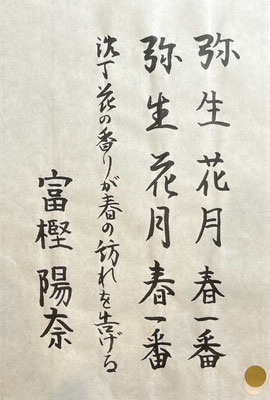 弥生花月春一番
弥生花月春一番
沈丁花の香りが春の訪れを告げる
富樫陽奈